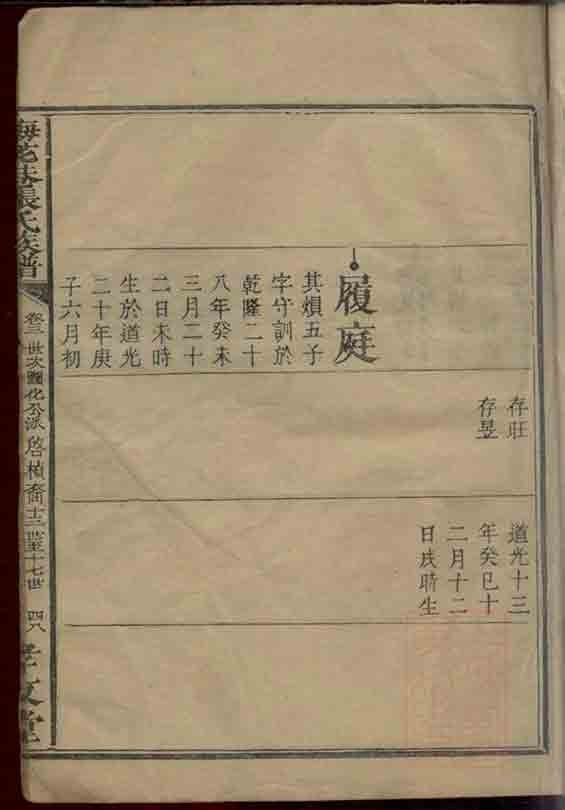 存旺
存昱
道光十三
年癸巳十
二月十二
日戌時生
履庭
其煩五子
字守訓於
乾隆二十
八年癸未
三月二十
二日未時
生於道光
二十年庚
子六月初
梅花巷張氏族譜
卷三 世次圖化公派 啓楨裔十三世至十七世 四八
孝友堂